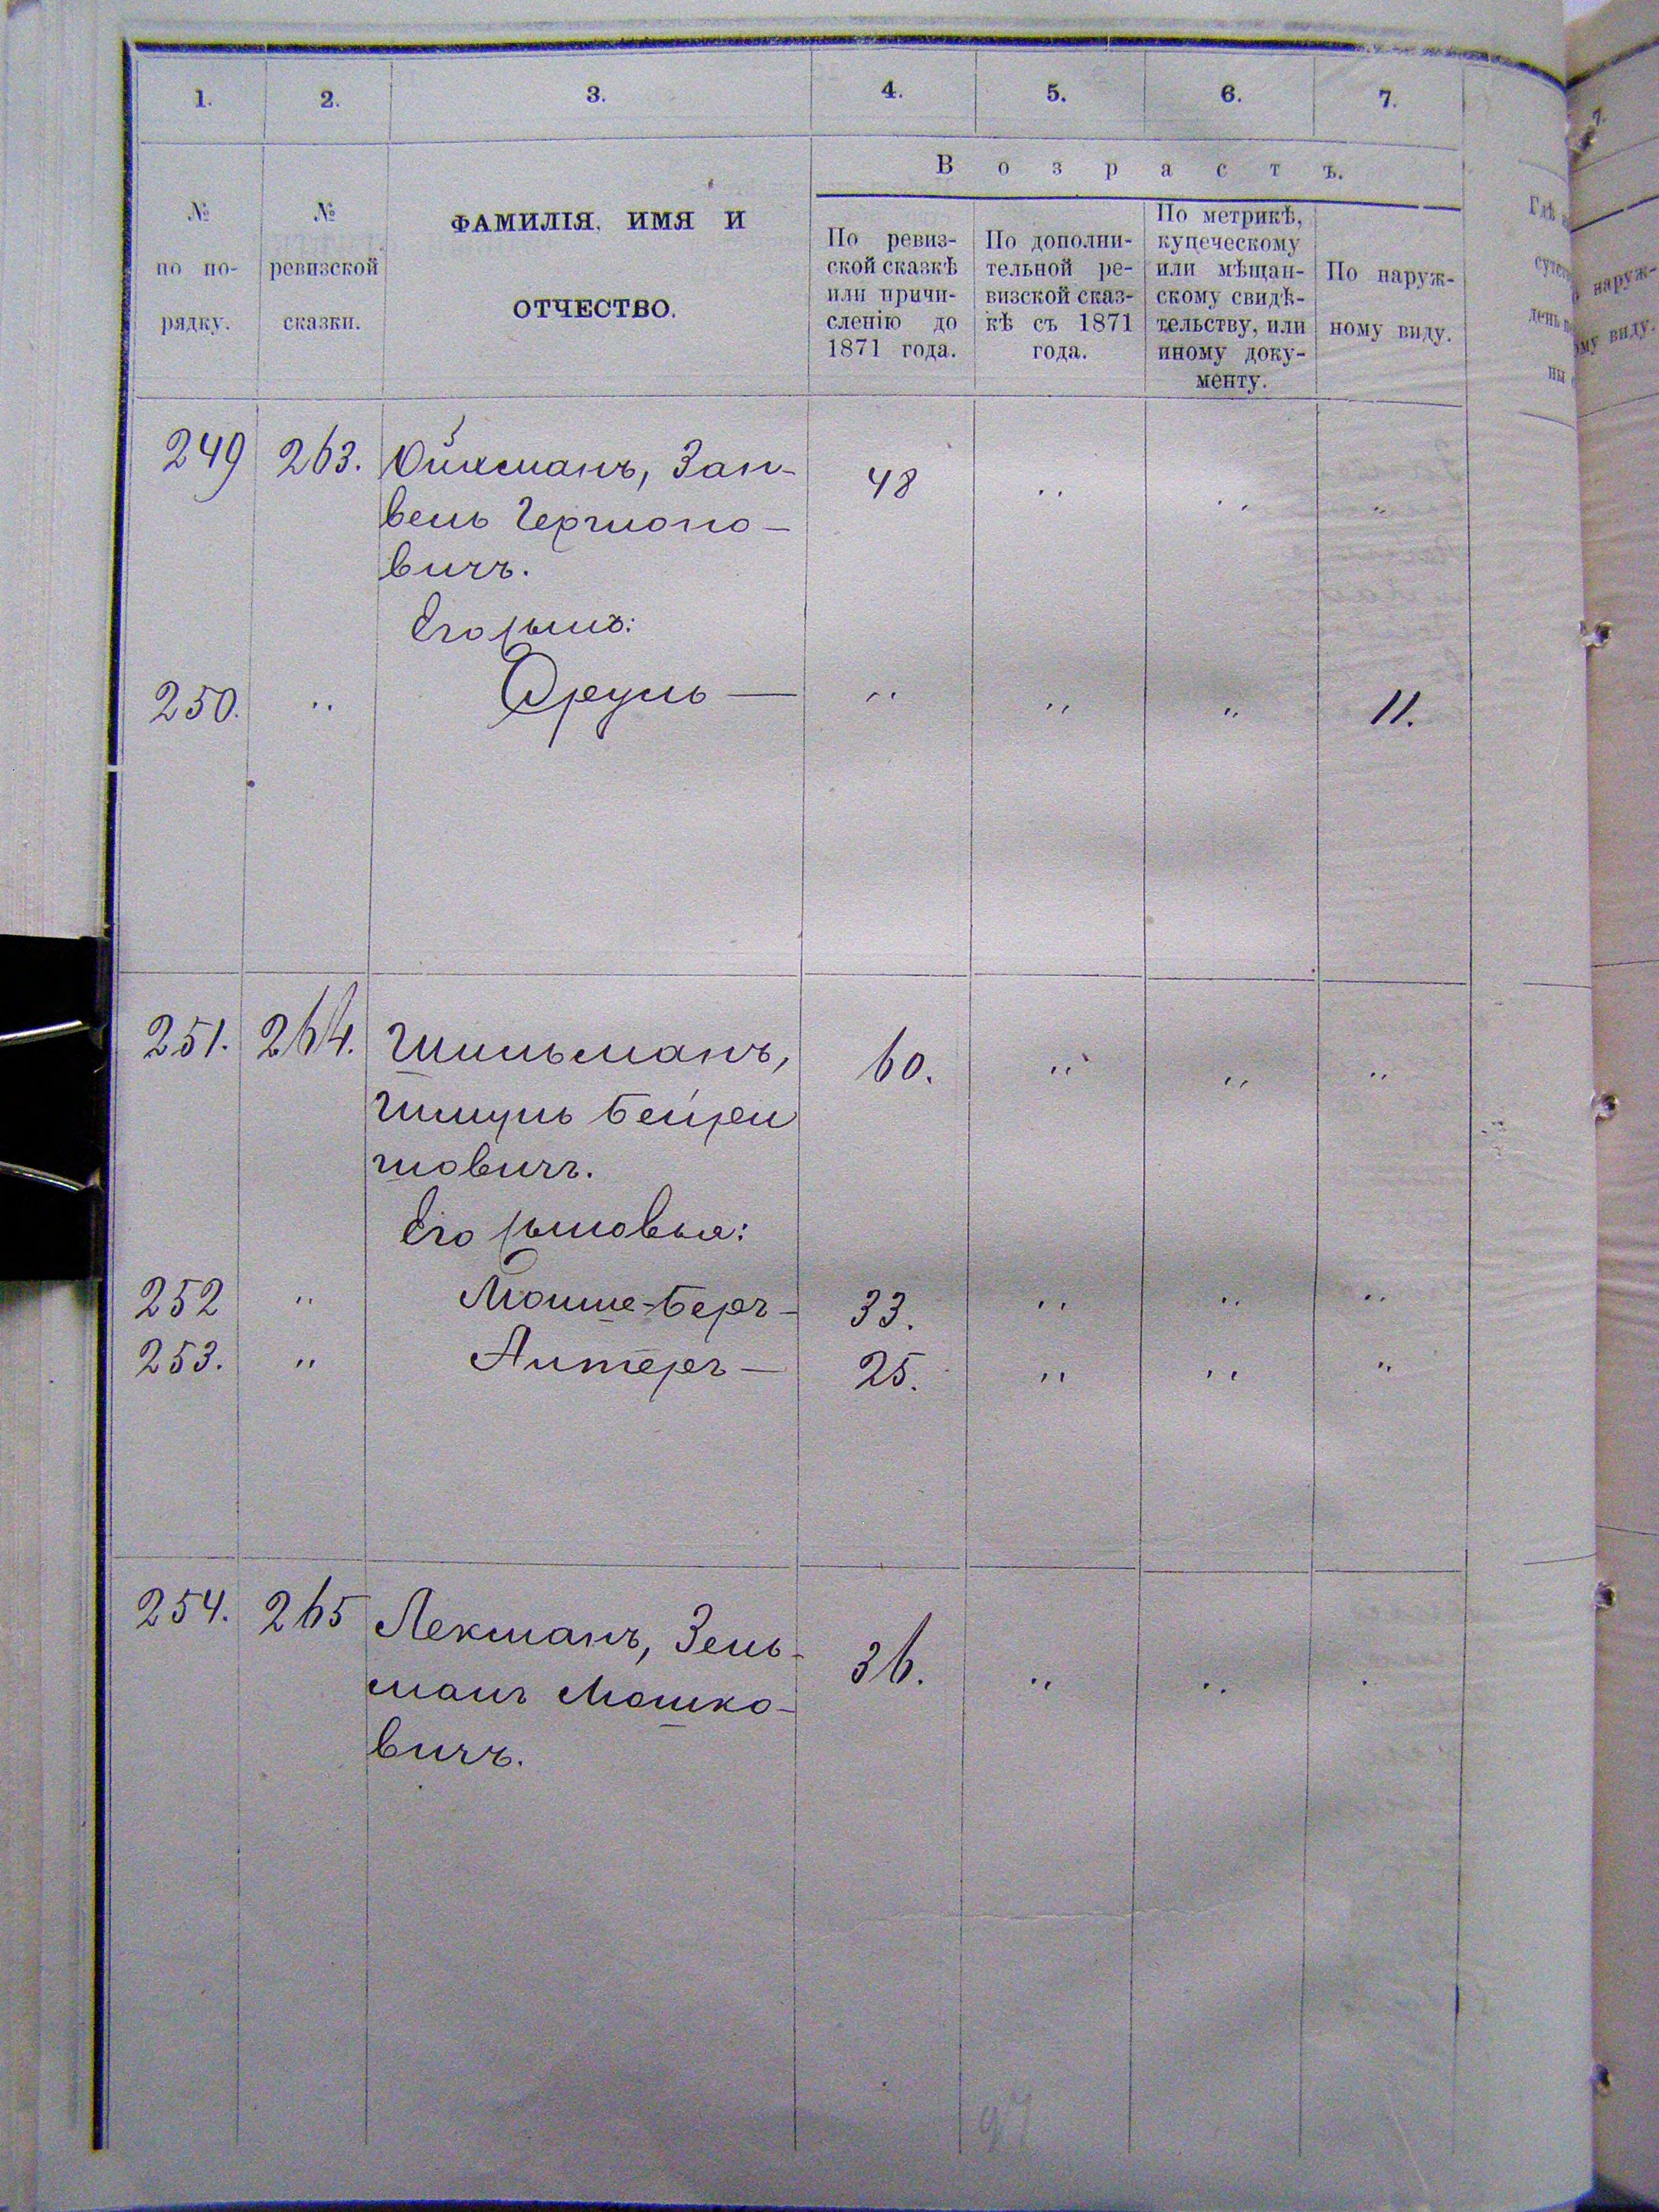 1. 2. 3. 4. 5. 6. 7.
№ по порядку.
№ ревизской сказки.
ФАМИЛІЯ, ИМЯ И
ОТЧЕСТВО.
Возрастъ.
По ревиз-
ской сказкѣ
или причи-
сленію до
1871 года.
По дополни-
тельной ре-
визской сказ-
кѣ съ 1871
года.
По метрикѣ,
купеческому
или мѣщан-
скому свидѣ-
тельству, или
иному доку-
менту.
По наруж-
ному виду.
249 263. Ойхманъ, Зан- 48 „ „ „
вель
вичъ.
Его сынъ:
250. „ Сруль — „ „ „ 11.
251. 264. Шильманъ, 60. „ „ „
Шмуль Бейри
шовичъ.
Его сыновья:
252 „ Мошше-Беръ- 33. „ „ „
253. „ Алтеръ — 25. „ „ „
254. 265 Лекманъ, Зель- 36. „ „ „
манъ Мошко-
вичъ.
97
наруж-
ому виду.